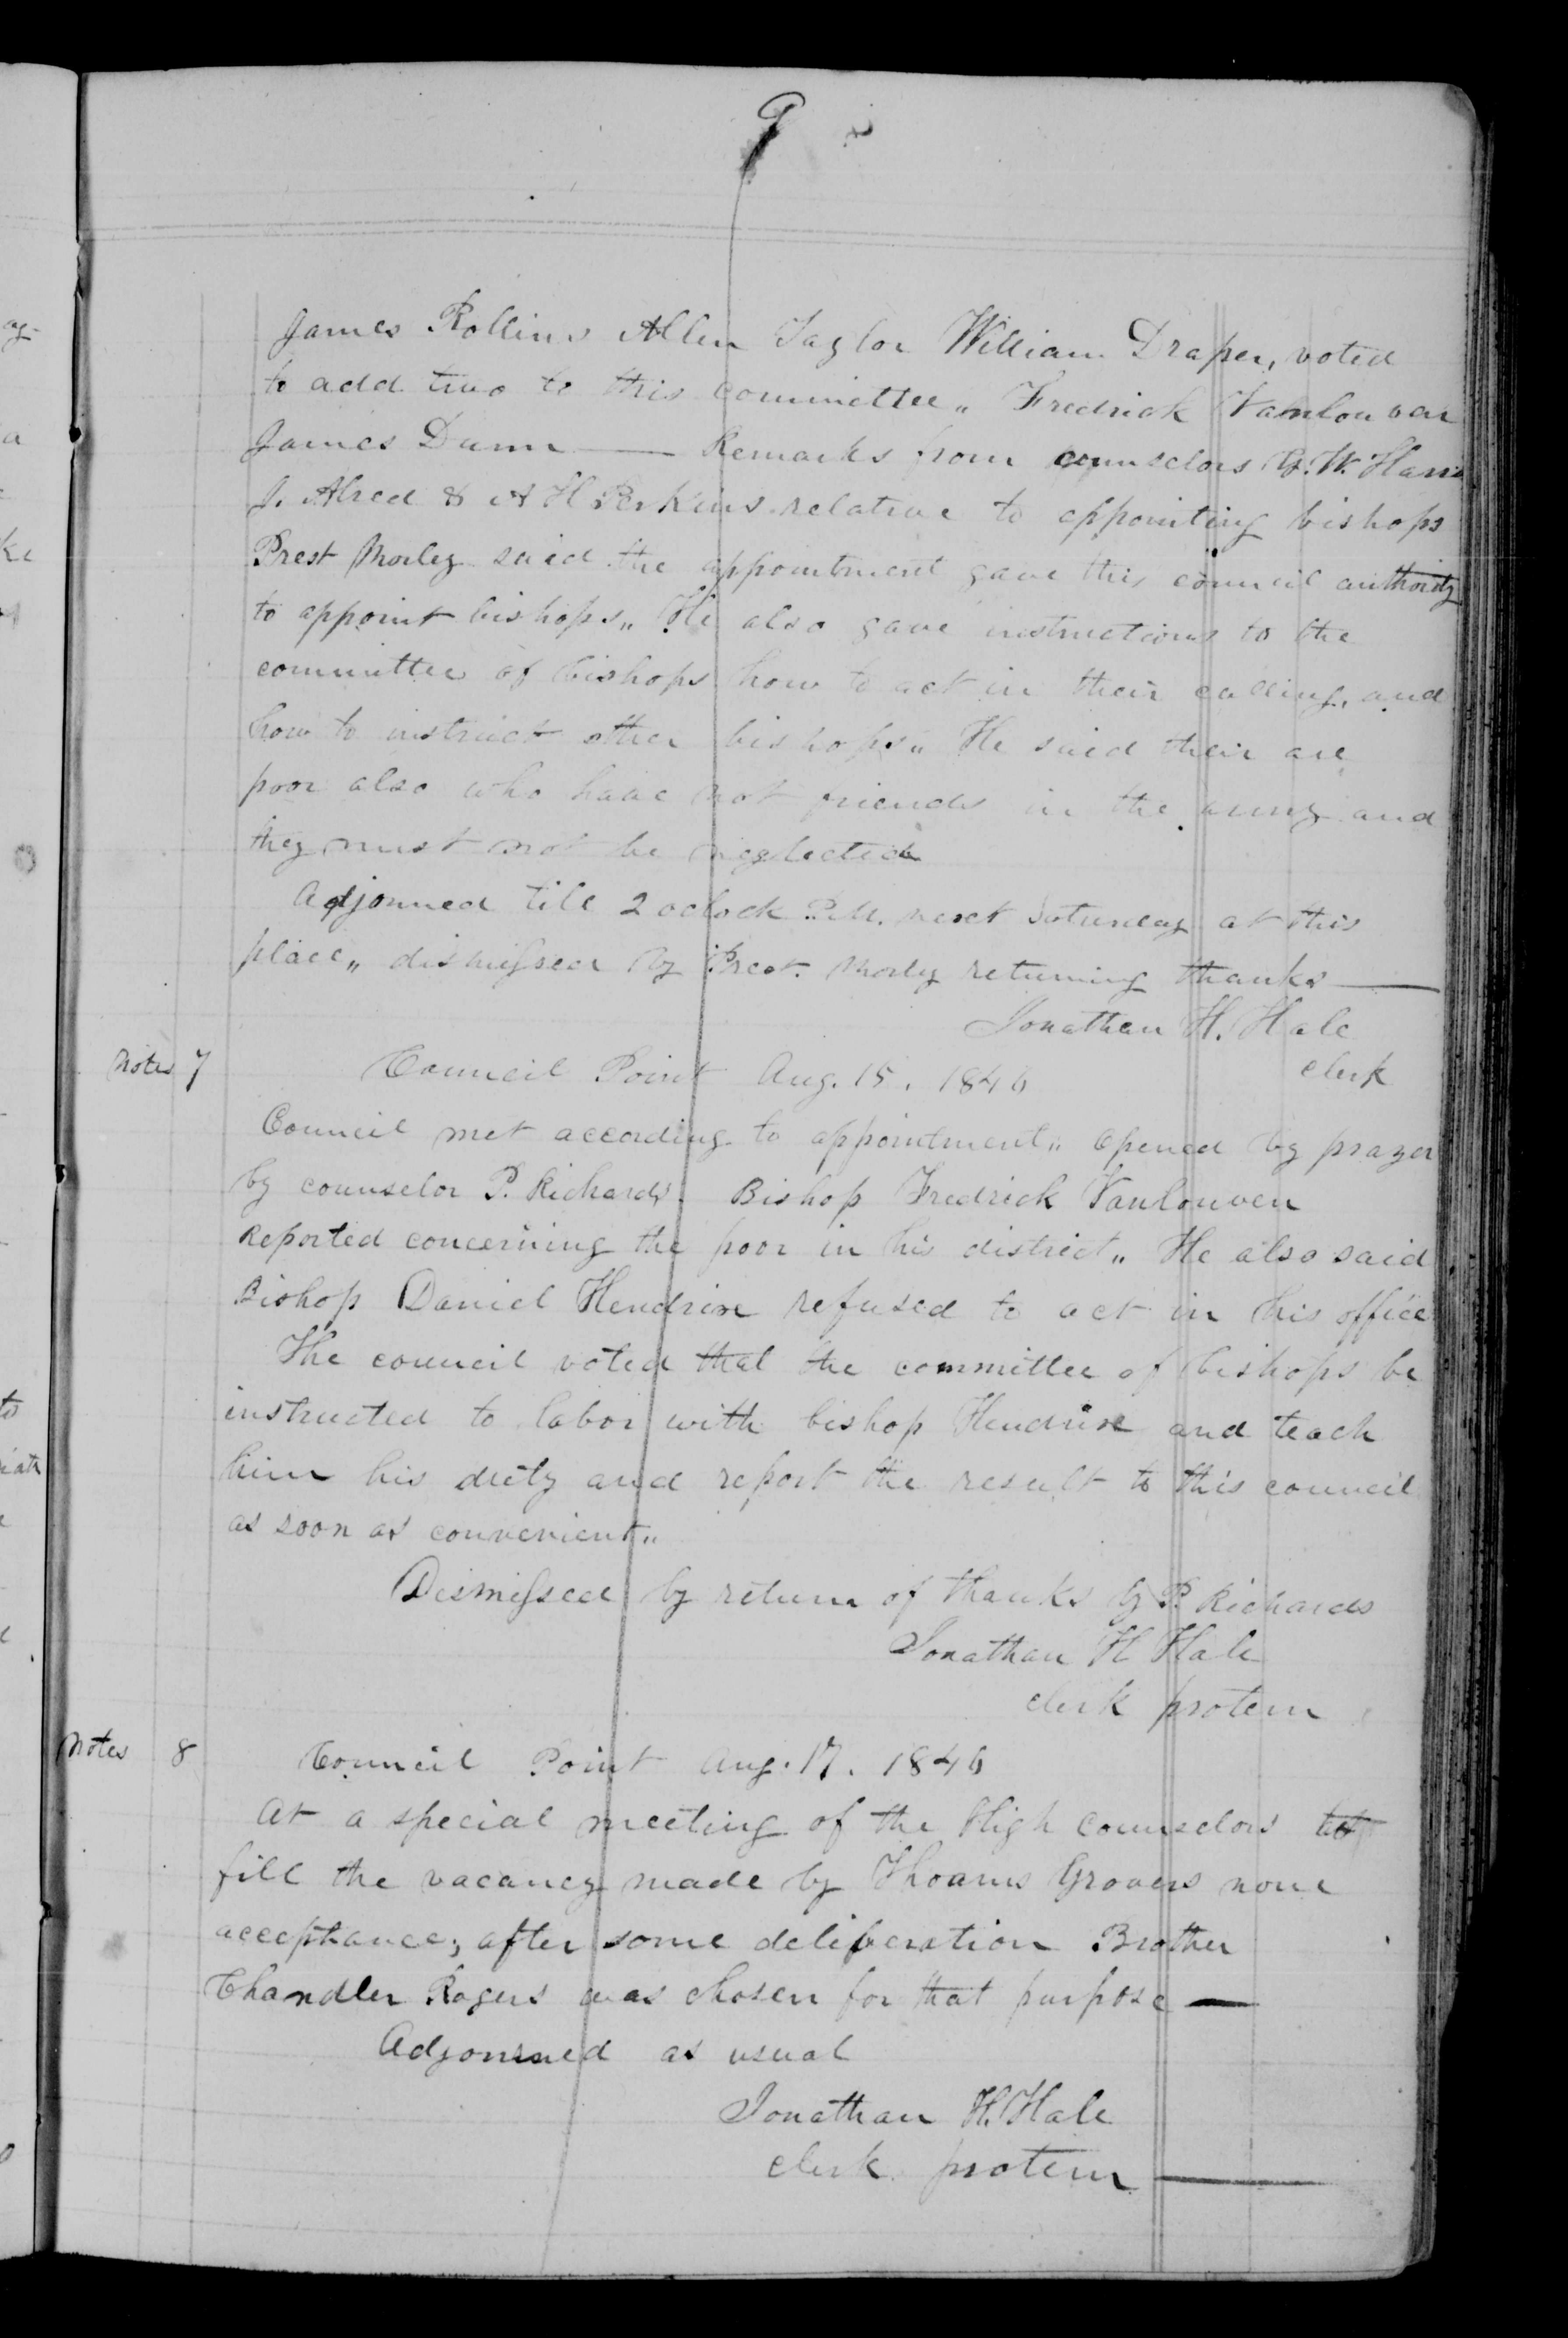 9
James Rollins Allen Taylor William Draper, voted
to add two to this committee „ Fredrick Vanlouvan
James Dunn — Remarks from counselors G. W. Harris
J. Alred & A H Perkins relative to appointing bishops
Prest Morley said the appointment gave this council authority
to appoint bishops „ He also gave instructions to the
committee of bishops how to act in their calling, and
how to instruct other bishops „ He said their are
poor also who have not friends in the army and
they must not be neglected
Adjourned till 2 oclock P.M. next Saturday at this
place „ dismissed by Prest. Morley returning thanks —
Jonathan H. Hale
clerk
Notes 7
Council Point Aug. 15. 1846
Council met according to appointment „ Opened by prayer
by counselor P. Richards. Bishop Fredrick Vanlouven
Reported concerning the poor in his district „ He also said
Bishop Daniel Hendrix refused to act in his office
The council voted that the committee of bishops be
instructed to labor with bishop Hendrix and teach
him his duty and report the result to this council
as soon as convenient „
Dismissed by return of thanks by P. Richards
Jonathan H Hale
clerk protem
Notes 8
Council Point Aug. 17. 1846
At a special meeting of the High counselors to
fill the vacancy made by Thoams Grovers none
acceptance; after some deliberation Brother
Chandler Rogers was chosen for that purpose —
Adjourned as usual
Jonathan H. Hale
clerk protem —